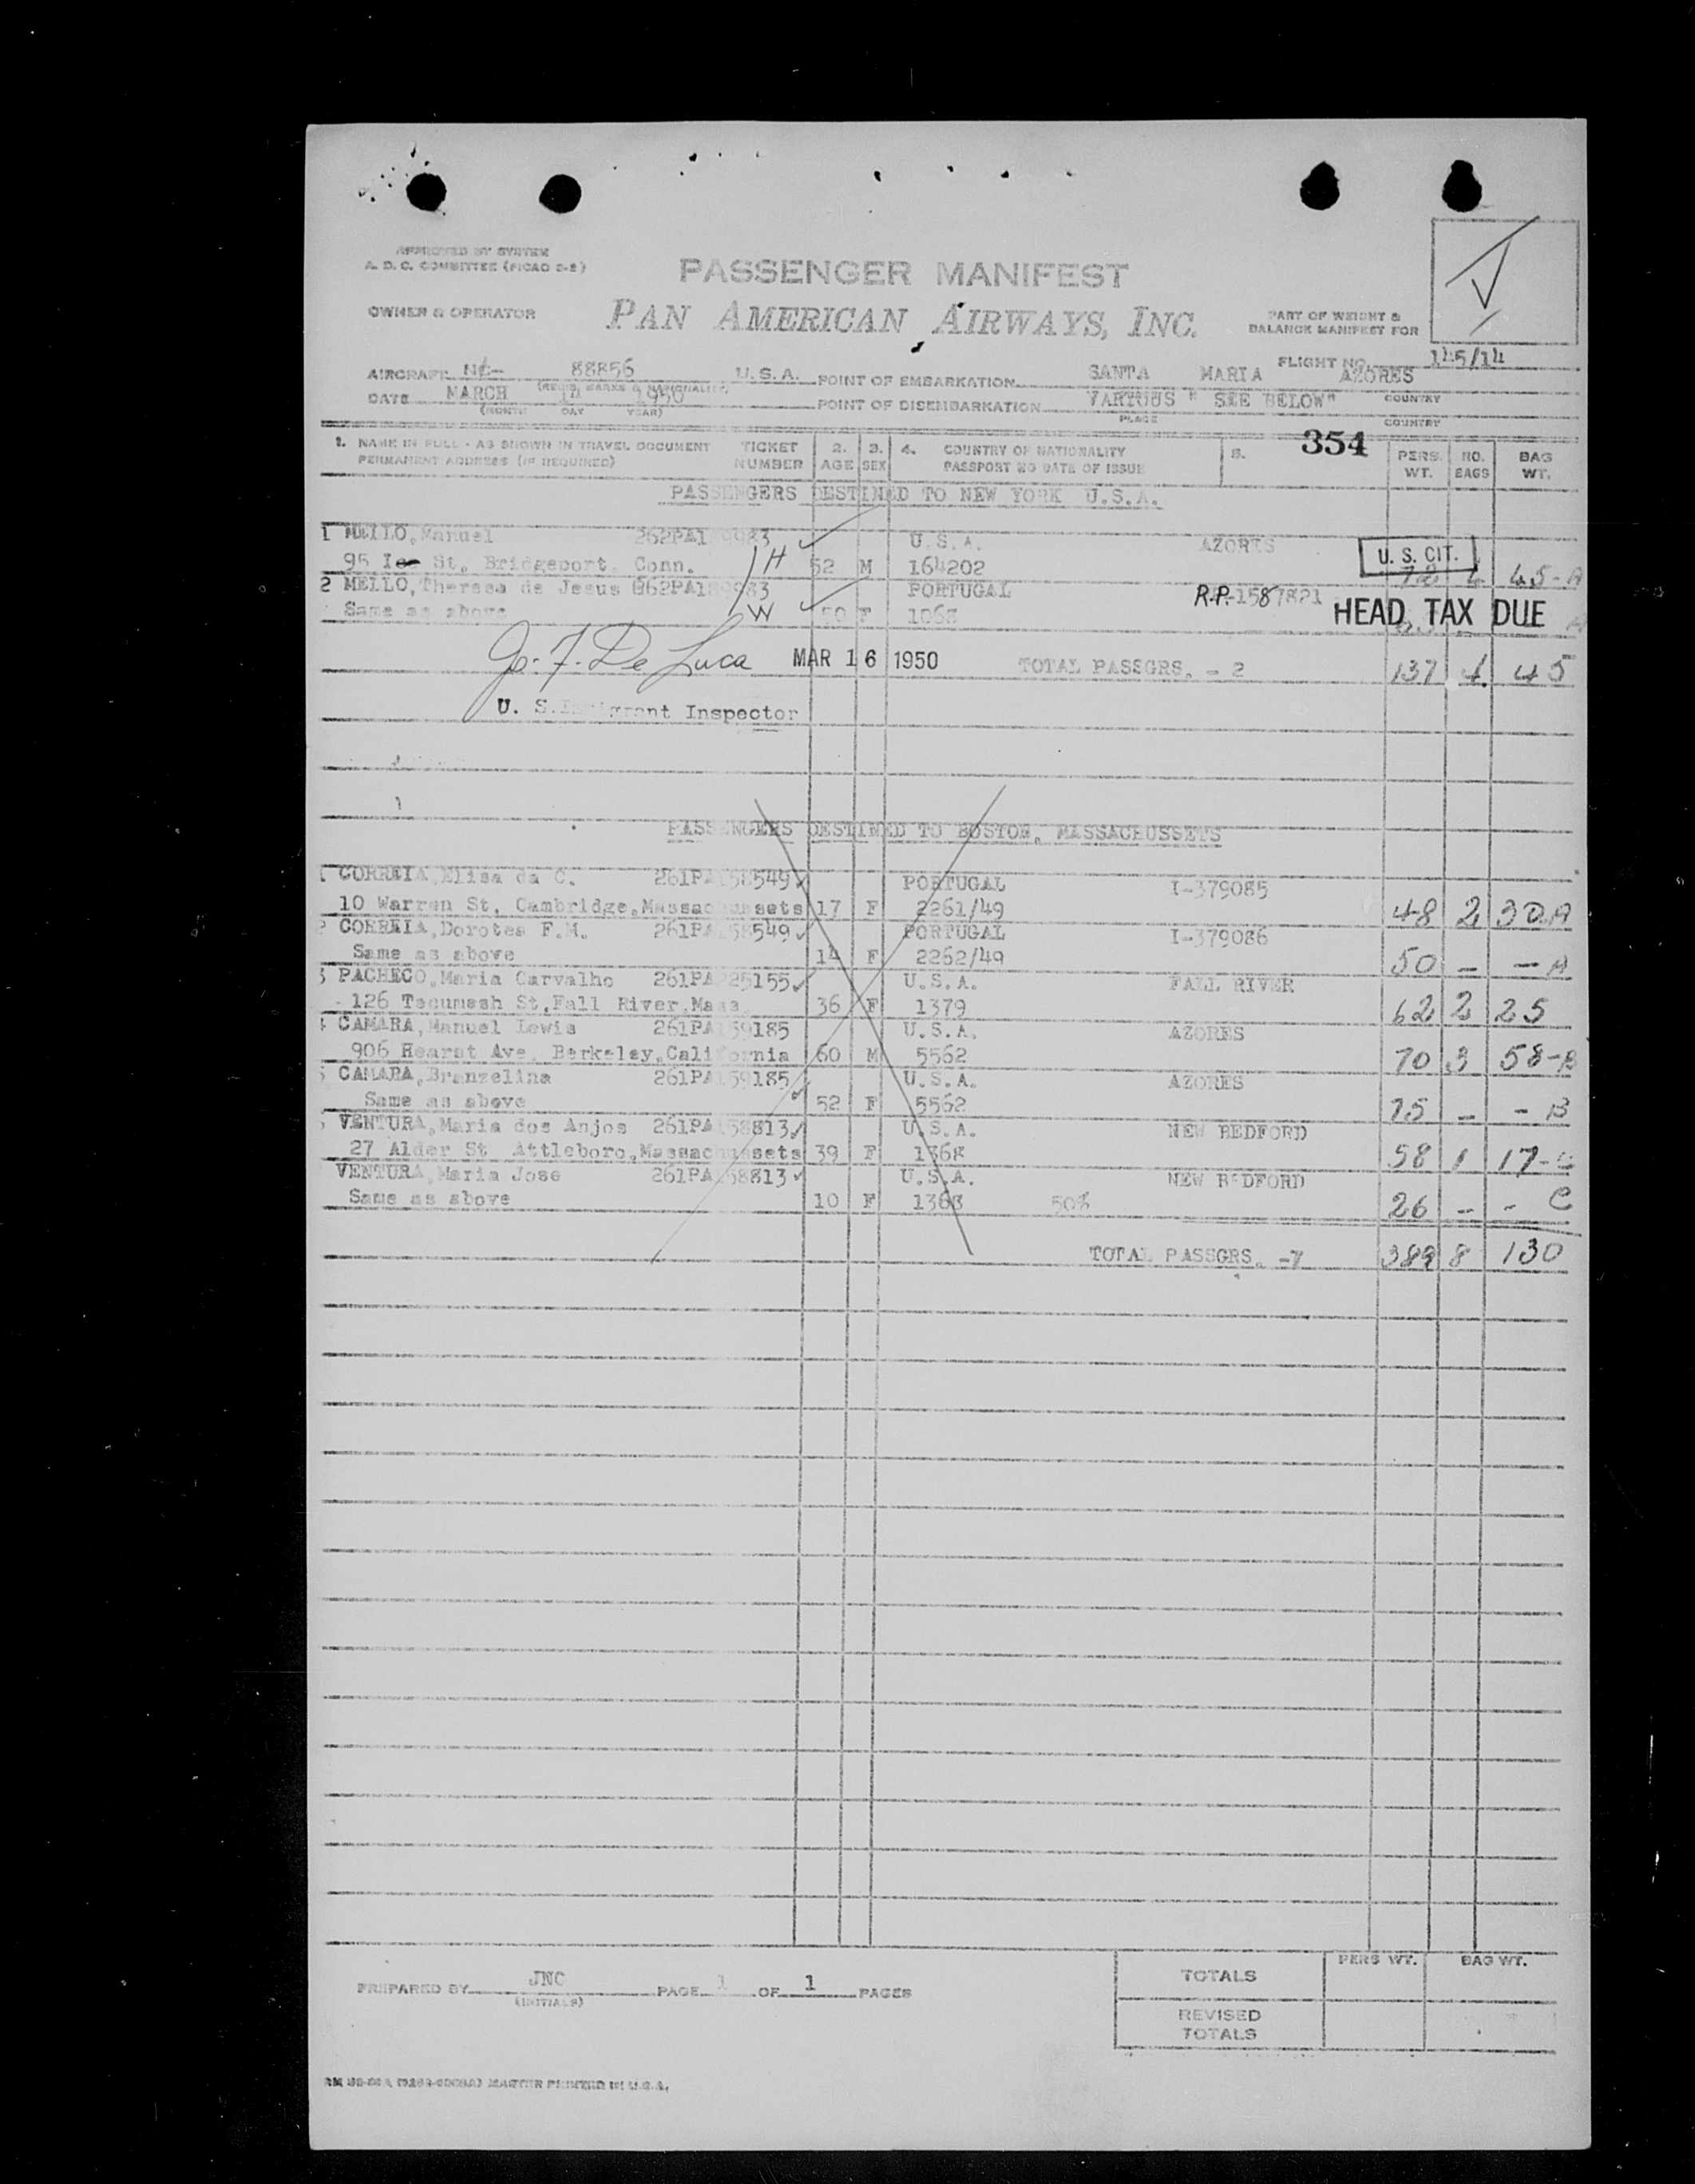 APPROVED BY SYSTEM
A. D. C. COMMITTEE (PICAO 2-2)
PASSENGER MANIFEST
OWNER & OPERATOR PAN AMERICAN AIRWAYS, INC.
PART OF WEIGHT &
BALANCE MANIFEST FOR
FLIGHT NO. 145/14
AIRCRAFT NC- 88856 U.S.A. POINT OF EMBARKATION SANTA MARIA AZORES
(REGIS. MARKS & NATIONALITY)
DATE MARCH 1950 POINT OF DISEMBARKATION VARIOUS " SEE BELOW" COUNTRY
(MONTH DAY YEAR) PLACE COUNTRY
354
1. NAME IN FULL - AS SHOWN IN TRAVEL DOCUMENT TICKET 2. 3. 4. COUNTRY OF NATIONALITY 5. PERS. NO. BAG
PERMANENT ADDRESS (IF REQUIRED) NUMBER AGE SEX PASSPORT NO DATE OF ISSUE WT. BAGS WT.
PASSENGERS DESTINED TO NEW YORK U.S.A.
1 MELLO, Manuel U.S.A. AZORES U. S. CIT.
95 St, Bridgeport, Conn. H 52 M 164202 72 4 45-A
2 MELLO, Theresa de Jesus PORTUGAL R.P.-1587821
Same as above W 50 F 1063 HEAD TAX DUE
Jo. F. De Luca MAR 16 1950 TOTAL PASSGRS. - 2 137 4 45
U. S. Immigrant Inspector
PASSENGERS DESTINED TO BOSTON, MASSACHUSSETS
CORREIA, Elisa da C. 261PA 58549 PORTUGAL I-379085
10 Warren St, Cambridge, Massachussets 17 F 2261/49 48 2 30 A
CORREIA, Dorotea F.M. 261PA 58549 PORTUGAL I-379086
Same as above 14 F 2262/49 50 - - A
3 PACHECO, Maria Carvalho 261PA 25155 U.S.A. FALL RIVER
126 Tecumesh St, Fall River, Mass. 36 F 1379 62 2 25
CAMARA, Manuel Lewis 261PA159185 U.S.A. AZORES
906 Hearst Ave, Berkeley, California 60 M 5562 70 3 58-B
CAMARA, Branzelina 261PA159185 U.S.A. AZORES
Same as above 52 F 5562 75 - - B
VENTURA, Maria dos Anjos 261PA158813 U.S.A. NEW BEDFORD
27 Alder St Attleboro, Massachussets 39 F 1368 58 1 17-C
VENTURA, Maria Jose 261PA 58813 U.S.A. NEW BEDFORD
Same as above 10 F 1363 50% 26 - - C
TOTAL PASSGRS. -7 389 8 130
PREPARED BY JNC PAGE 1 OF 1 PAGES
(INITIALS)
PERS WT. BAG WT.
TOTALS
REVISED
TOTALS
MASTER PRINTED IN U.S.A.